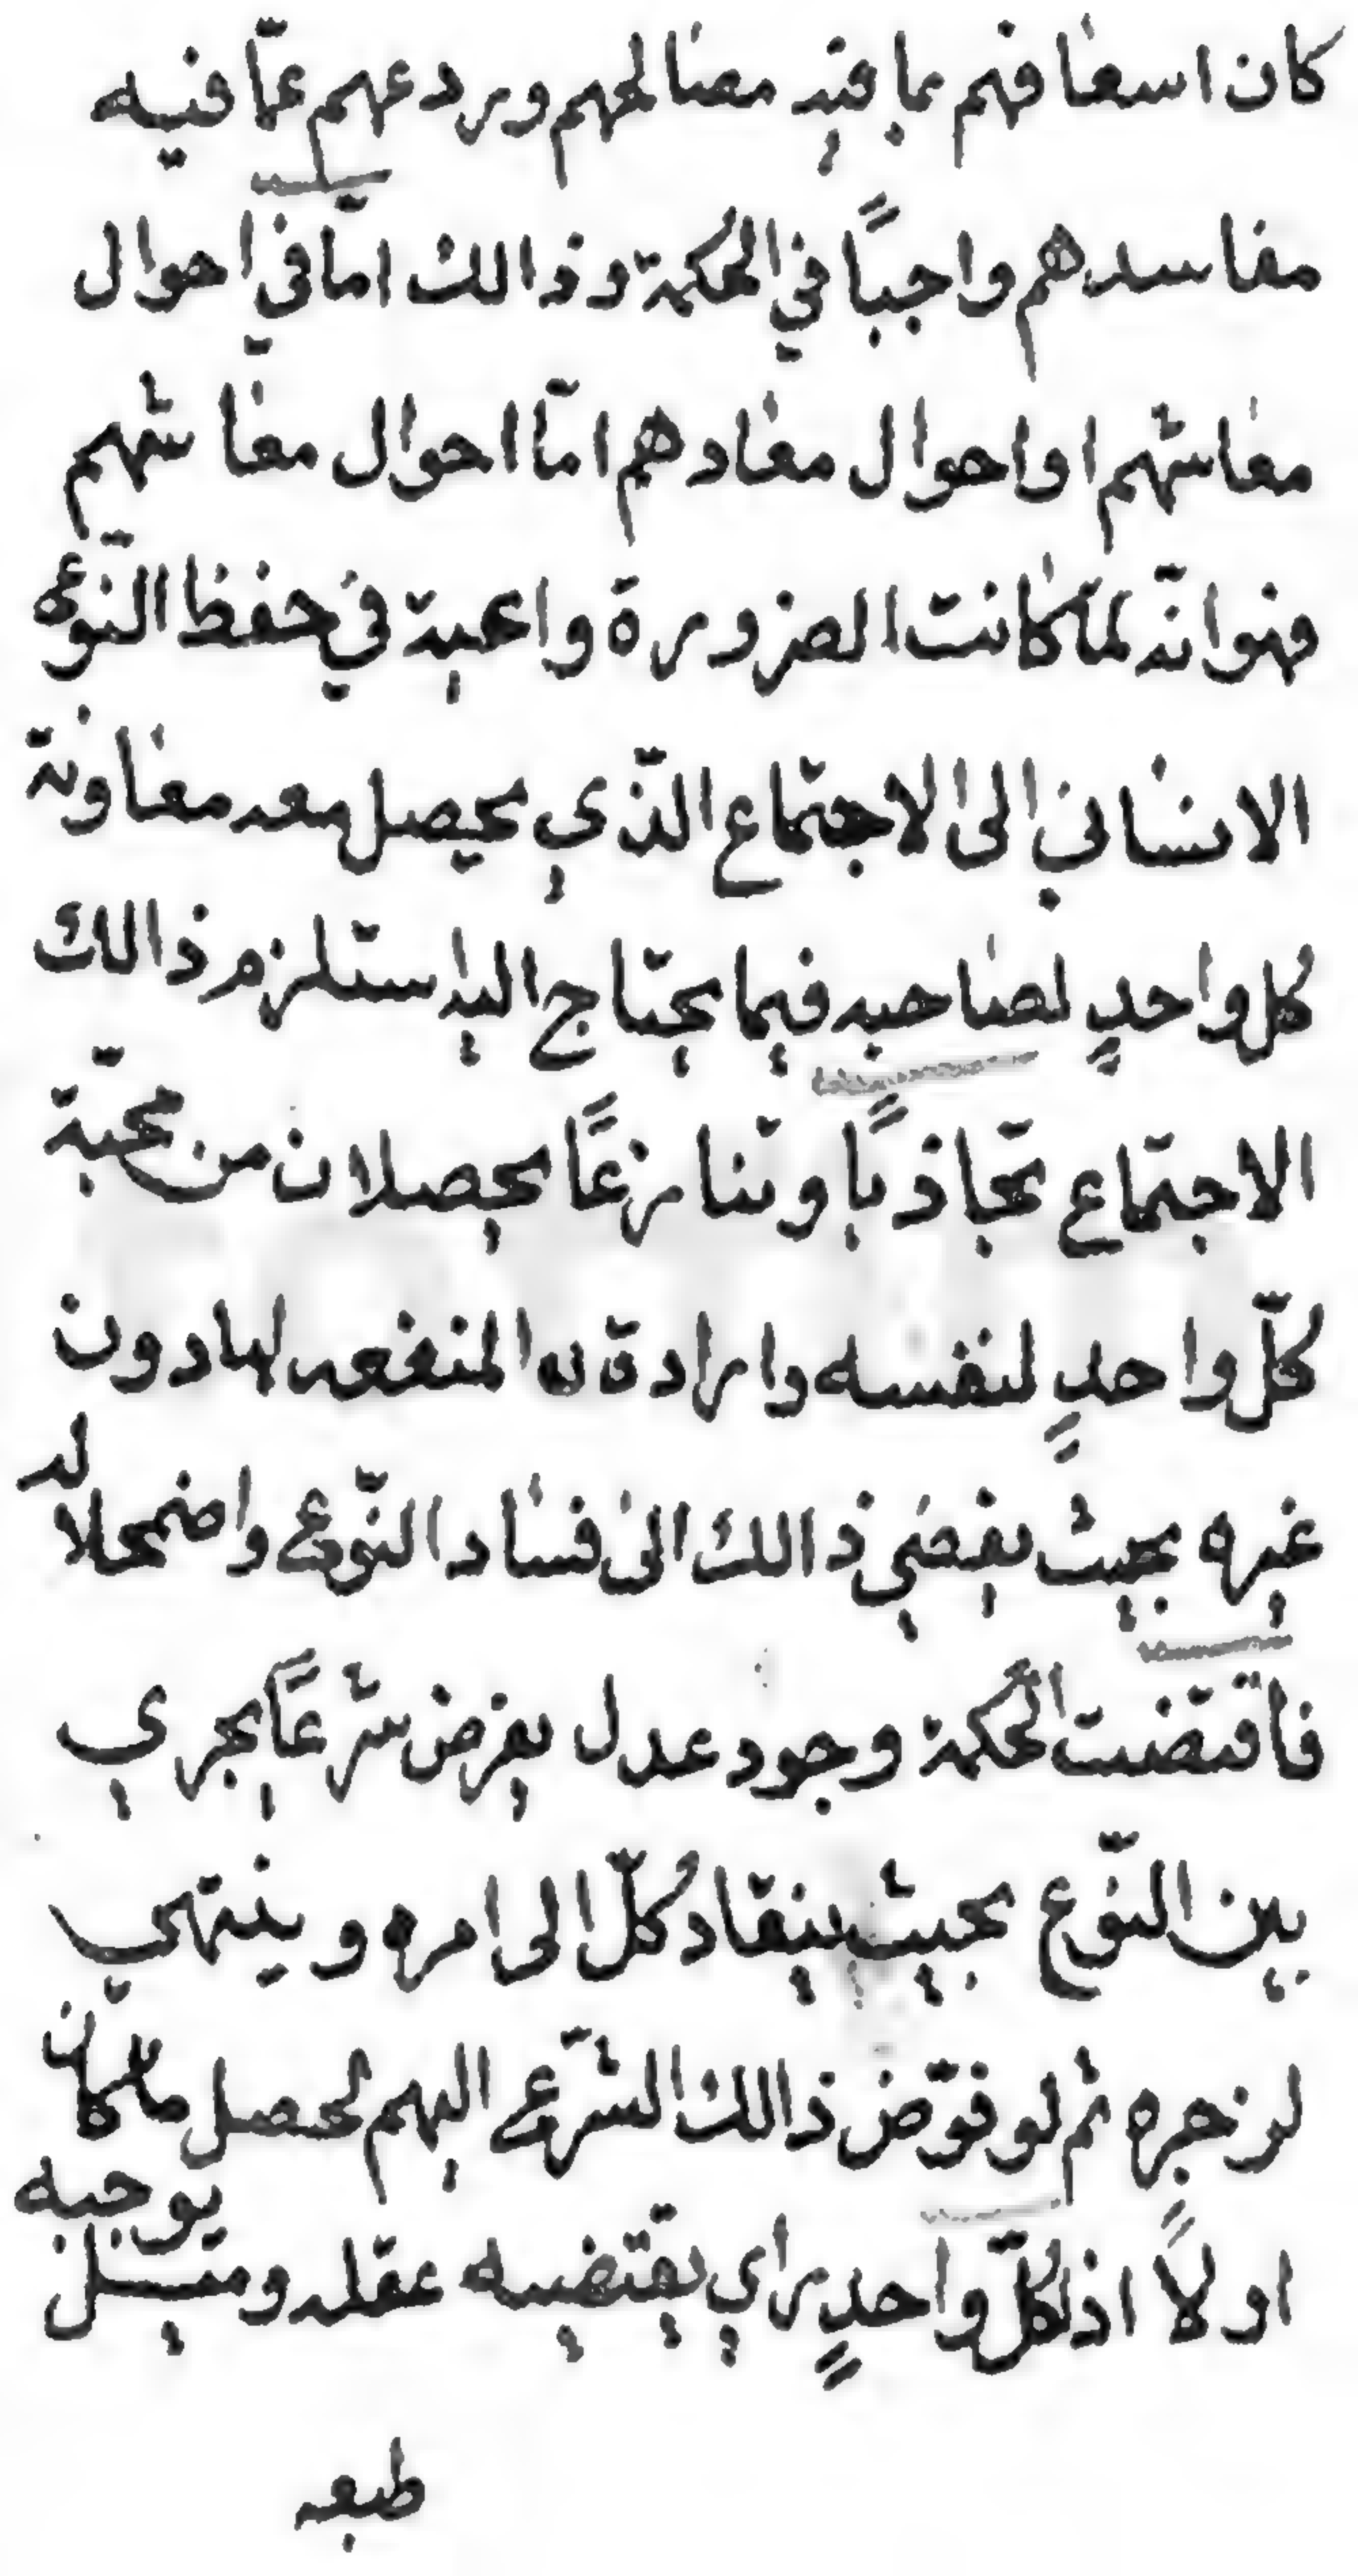 كان اسعافهم بما فيه مصالحهم وردعهم عمّا فيه
مفاسدهم واجبًا في الحكمة وذالك امّا في احوال
معاشهم او احوال معادهم امّا احوال معاشهم
فهو انّه لمّا كانت الضرورة داعية في حفظ النّوع
الانساني الى الاجتماع الذّي يحصل معه معاونة
كُل واحدٍ لصاحبه فيما يحتاج اليه استلزم ذالك
الاجتماع تجاذبًا وتنازعًا يحصلان من محبّة
كلّ واحدٍ لنفسه وارادة المنفعه لها دون
غيره بحيث يفضي ذالك الى فساد النّوع واضمحلاله
فاقتضت الحُكمة وجود عدل يفرض شرعًا يجري
بين النّوع بحيث ينقاد كُلّ الى امره وينتهي
لزجره ثم لو فوّض ذالك الشّرع اليهم لحصل ما كان
اولاً اذ لكُلّ واحدٍ راي يقتضيه عقله وميل يوجبه
طبعه